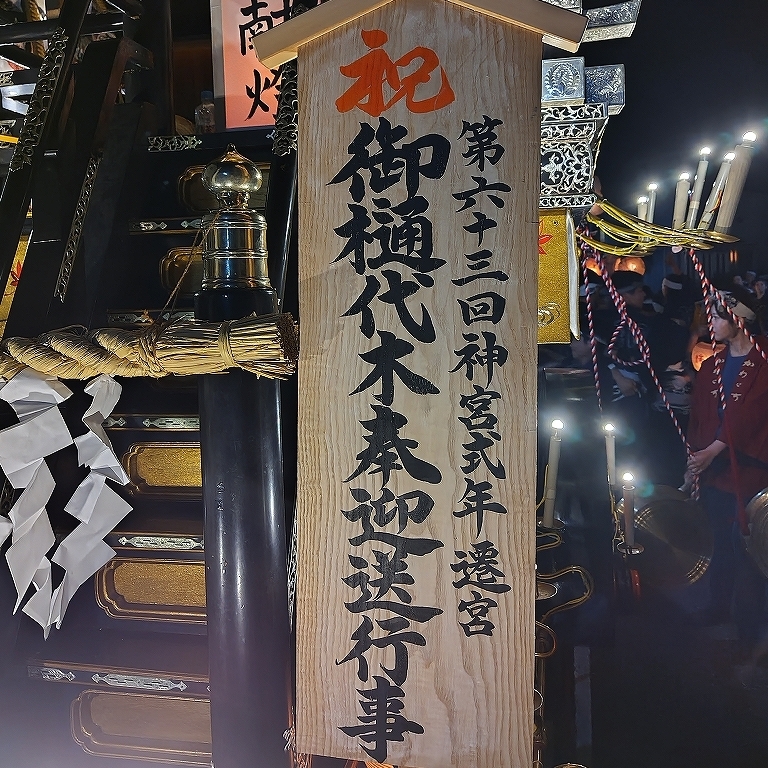 祝
第六十三回神宮式年遷宮
御樋代木奉迎送行事
献
燈